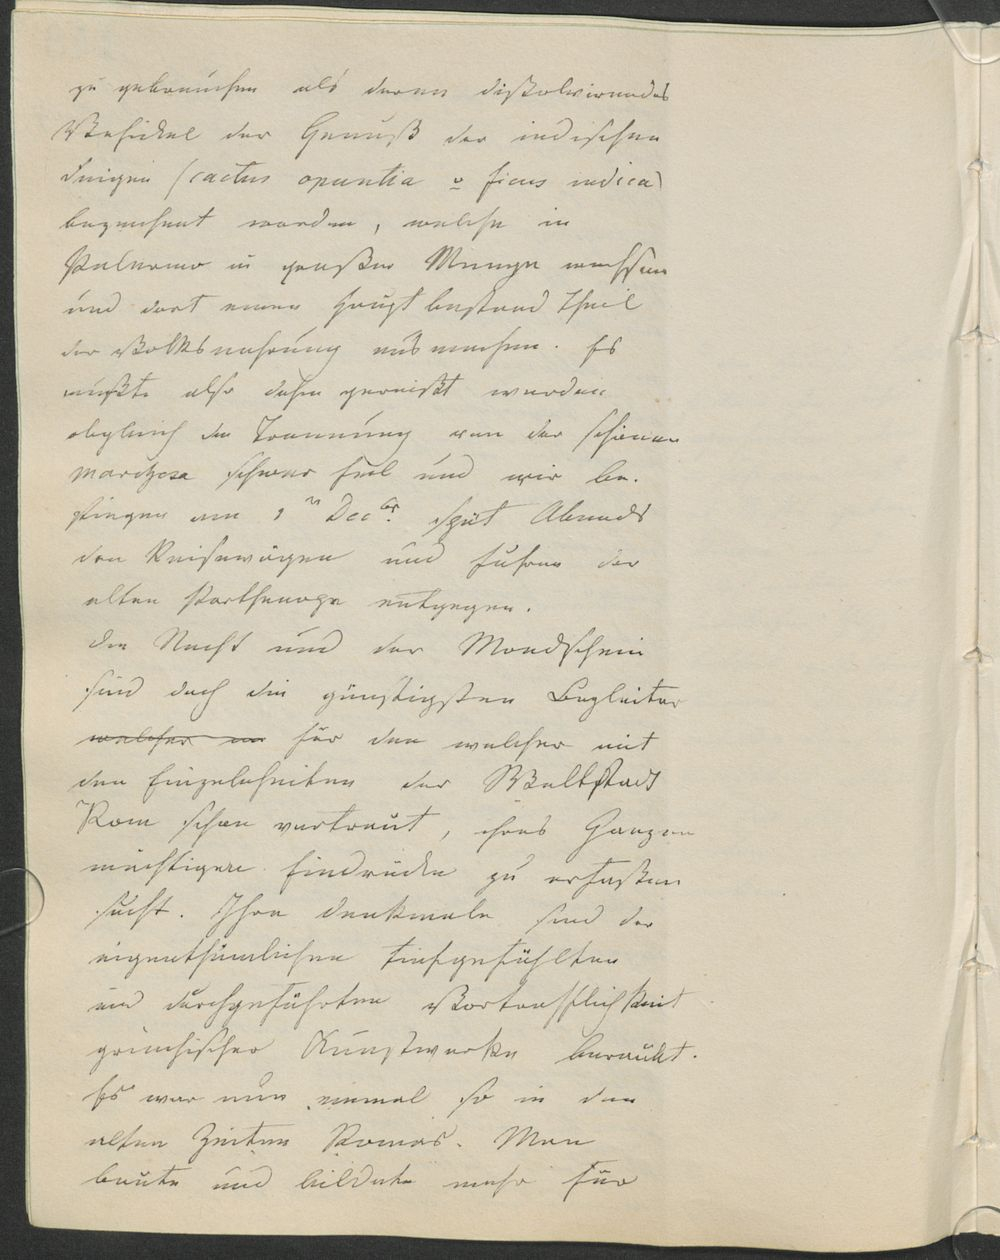 zu gebrauchen als deren dißolvirendes
Vehickel der Genuß der indischen
Feigen (cactus opuntia v ficus indica)
bezeichnet worden, welche in
Palermo in großer Menge wachsen
und dort einen Haupt bestand Theil
der Volksnahrung ausmachen. Es
mußte also dahin gereißt werden
obgleich die Trennung von der schönen
schwer fiel und wir be-
stiegen am 9ten Decbr. spät Abends
den Reisewagen und fuhren der
alten Parthenope entgegen.
Die Nacht und der Mondschein
sind doch die günstigsten Begleiter
welcher für den welcher mit
den Einzelnheiten der Weltstadt
Rom schon vertraut, ihres Ganzen
mächtigere Eindrücke zu erfaßen
sucht. Ihre Denkmale sind der
eigenthümlichen tiefgefühlten
und durchgeführten Vortrefflichkeit
griechischer Kunstwerke beraubt.
Es war nun einmal so in den
alten Zeiten Romas. Man
baute und bildete mehr für